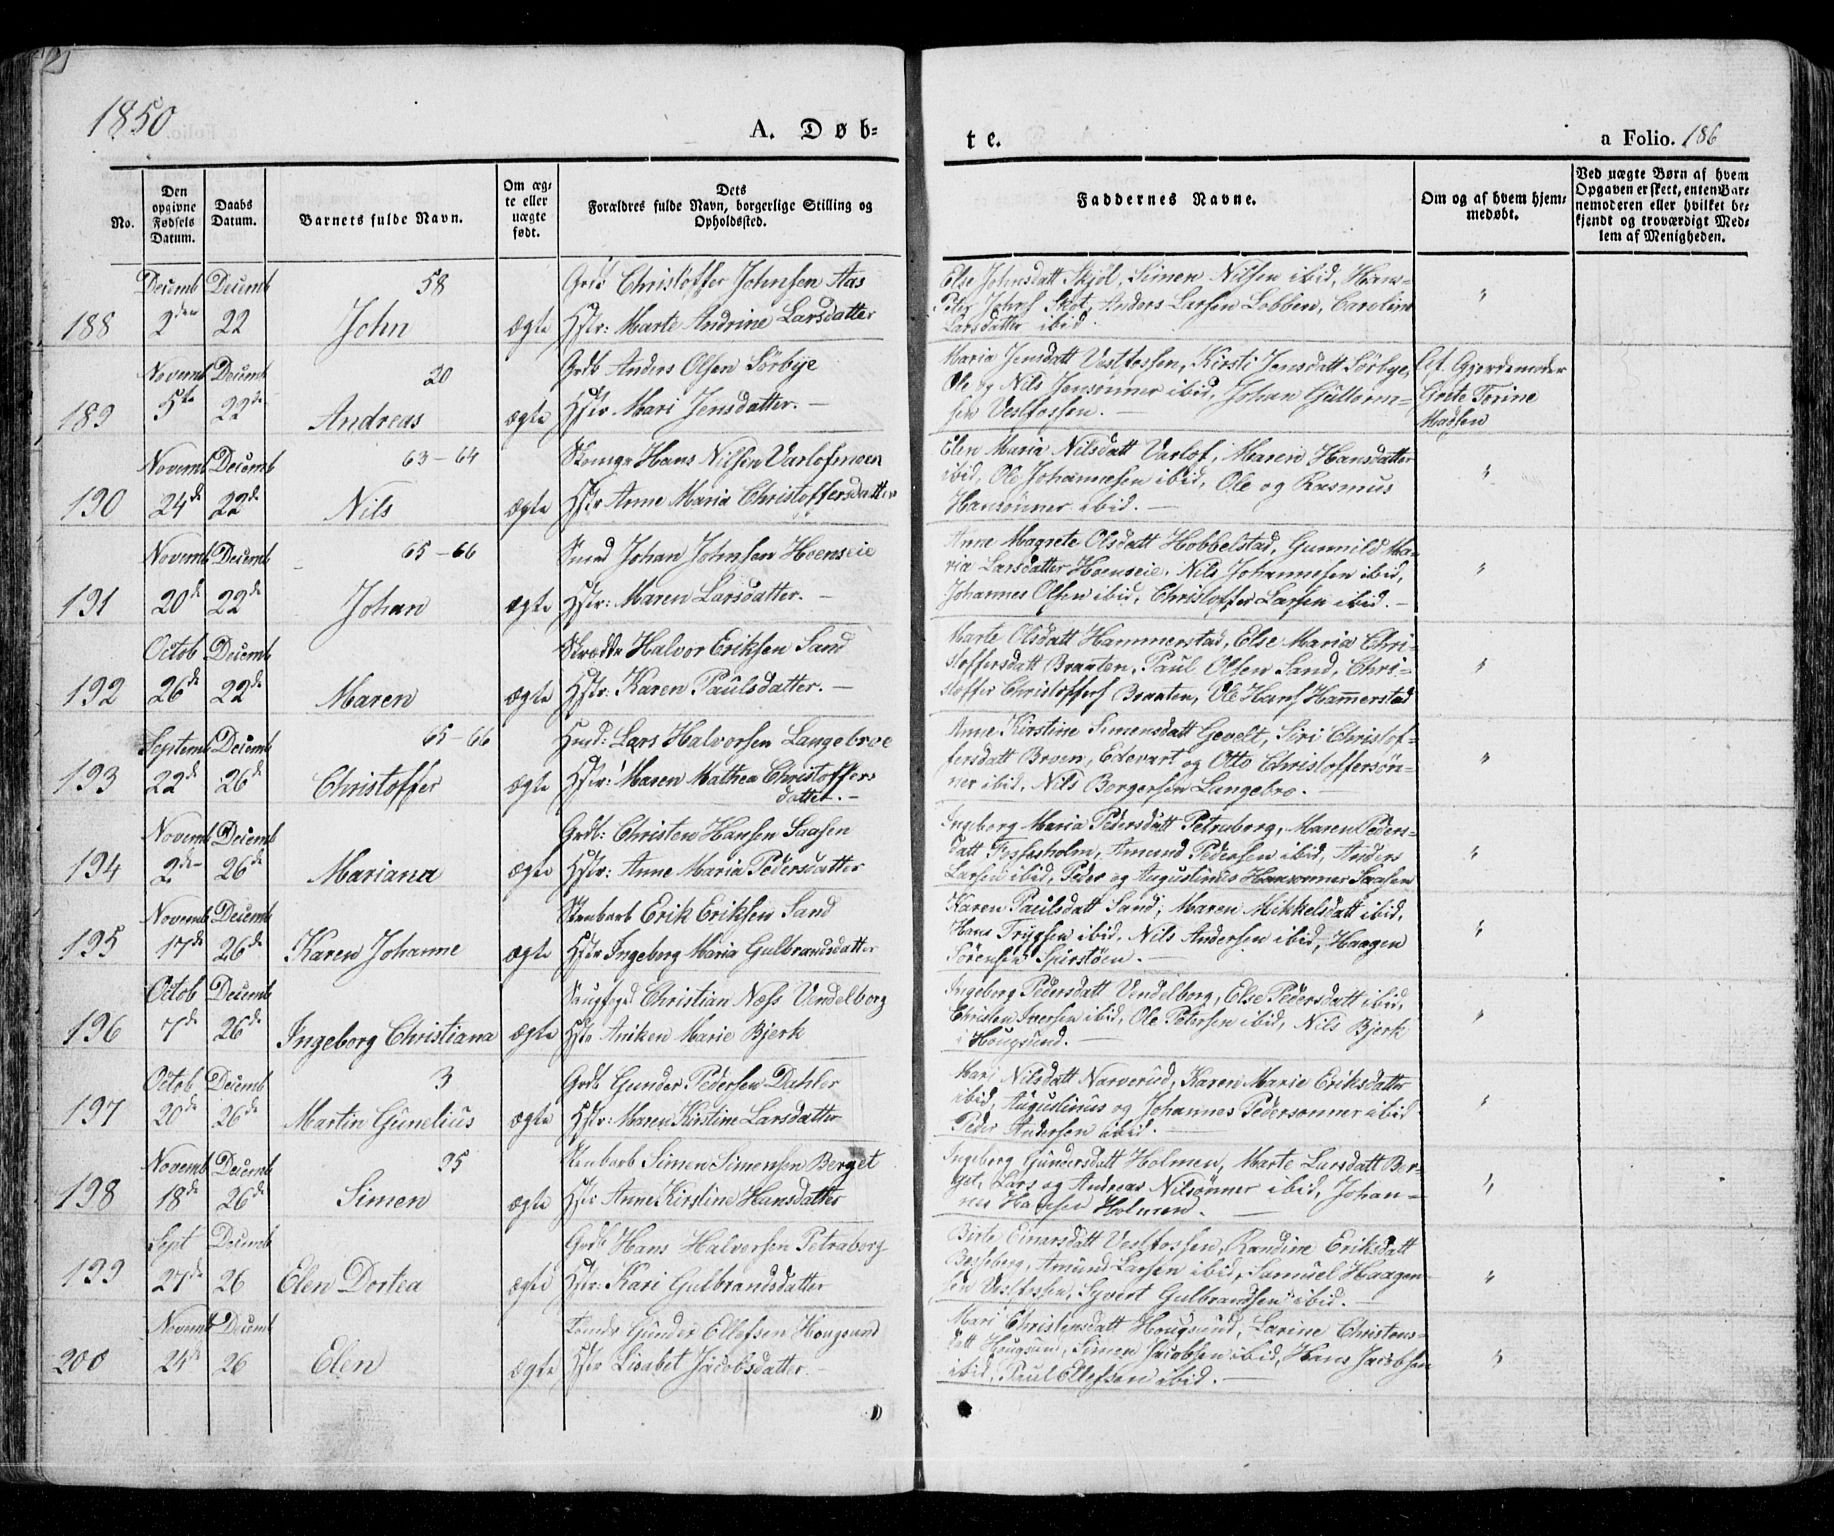 1850
A. Døb-
te.
a Folio. 186
No.
Den opgivne Fødsels Datum.
Daabs Datum.
Barnets fulde Navn.
Om ægte eller uægte født.
Dets Forældres fulde Navn, borgerlige Stilling og Opholdssted.
Faddernes Navne.
Om og af hvem hjemmedøbt.
Ved uægte Børn af hvem Opgaven er skeet, enten Barnemoderen eller hvilket bekjendt og troværdigt Medlem af Menigheden.
Decemb Decemb 58 Christoffer Johnsen Aas
188 2den 22 John ægte Hstr: Marte Andrine Larsdatter
Else Johnsdatt Skjøl, Simen Nilsen ibid, Hans
Johnsf Skot, Anders Larsen Lobben, Caroline
Larsdatter ibid. "
Novemb Decemb 20 Grdb Anders Olsen Sörbye
189 5te 22de Andreas ægte Hstr Mari Jensdatter. —
Maria Jensdatt Vestfossen, Kirsti Jensdatt Sörbye,
Ole og Nils Jensønner ibid, Johan Gullerm-
sen Vestfossen. —
Af Gjordemoder
Grete Torine
Madsen
Novemb Decemb 63-64 Skomgr Hans Nilsen Varlofmoen
190 24de 22de Nils ægte Hstr Anne Maria Christoffersdatter
Elen Maria Nilsdatt Varlof, Maren Hansdatter
ibid, Ole Johannesen ibid, Ole og Rasmus
Hansønner ibid. — "
Novemb Decemb 65-66 Smed Johan Johnsen Hoenseie
191 20de 22de Johan ægte Hstr: Maren Larsdatter. —
Anne Magrete Olsdatt Hobbelstad, Gunnild Ma-
ria Larsdatter Hoenseie, Nils Johannesen ibid,
Johannes Olsen ibid, Christoffer Larsen ibid. — "
Octob Decemb Skrædde Halvor Eriksen Sand
192 26de 22de Maren ægte Hstr: Karen Paulsdatter. —
Marte Olsdatt Hammerstad, Else Maria Chri-
stoffersdatt Braaten, Paul Olsen Sand, Chri-
stoffer Christoffers Braaten, Ole Hansf Hammerstad "
Septemb Decemb 65-66 Lars Halvorsen Langebroe
193 22de 26de Christoffer ægte Hstr: Maren Mathea Christoffers
datter. —
Anne Kirstine Simensdatt Gevelt, Siri Christof-
fersdatt Broen, Edevart og Otto Christoffersøn-
ner ibid, Nils Borgersen Langebro. — "
Novemb Decemb Grdb: Christen Hansen Saasen
194 2den 26de Mariana ægte Hstr: Anne Maria Pedersdatter
Ingeborg Maria Pedersdatt Petraborg, Maren Peders-
datt Fossesholm, Amund Pedersen ibid, Anders
Larsen ibid, Peder og Augustinus Hansønner Saasen "
Novemb Decemb Stenbarb Erik Eriksen Sand
195 17de 26de Karen Johanne ægte Hstr Ingeborg Maria Gulbrandsdatter
Karen Paulsdatt Sand, Maren Mikkelsdatt ibid,
Hans Trygsen ibid, Nils Andersen ibid, Haagen
Sörensen Spirstoen. — "
Octob Decemb Christian Næss Vendelborg
196 7de 26de Ingeborg Christiana ægte Hstr Aniken Marie Bjerk
Ingeborg Pedersdatt Vendelborg, Else Pedersdatt ibid,
Christen Iversen ibid, Ole Petersen ibid, Nils Bjerk
i Hougsund. — "
Octob Decemb 3 Grdb Gunder Pedersen Dahler
197 20de 26de Martin Gunelius ægte Hstr: Maren Kirstine Larsdatter
Kari Nilsdatt Narverud, Karen Marie Eriksdatter
ibid, Augustinus og Johannes Pedersønner ibid
Peder Andersen ibid. — "
Novemb Decemb 35 Stenbarb Simen Simensen Berget
198 18de 26de Simen ægte Hstr Anne Kirstine Hansdatter
Ingeborg Gundersdatt Holmen, Marte Larsdatt Ber-
get, Lars og Andreas Nilsønner ibid, Johan-
nes Hansen Holmen. — "
Sept Decemb Grdb Hans Halvorsen Petraborg
199 27de 26 Elen Dortea ægte Hstr: Kari Gulbrandsdatter
Birte Einarsdatt Vestfossen, Randine Eriksdatt
Besseberg, Amund Larsen ibid, Samuel Haagen-
sen Vestfossen, Syvert Gulbrandsen ibid. — "
Novemb Decemb Gunder Ellefsen Hougsund
200 24de 26 Elen ægte Hstr Lisabet Jacobsdatter
Mari Christensdatt Hougsund, Larine Christens-
datt Hougsun, Simen Jacobsen ibid, Hans Jacobsen
ibid, Paul Ellefsen ibid. — "